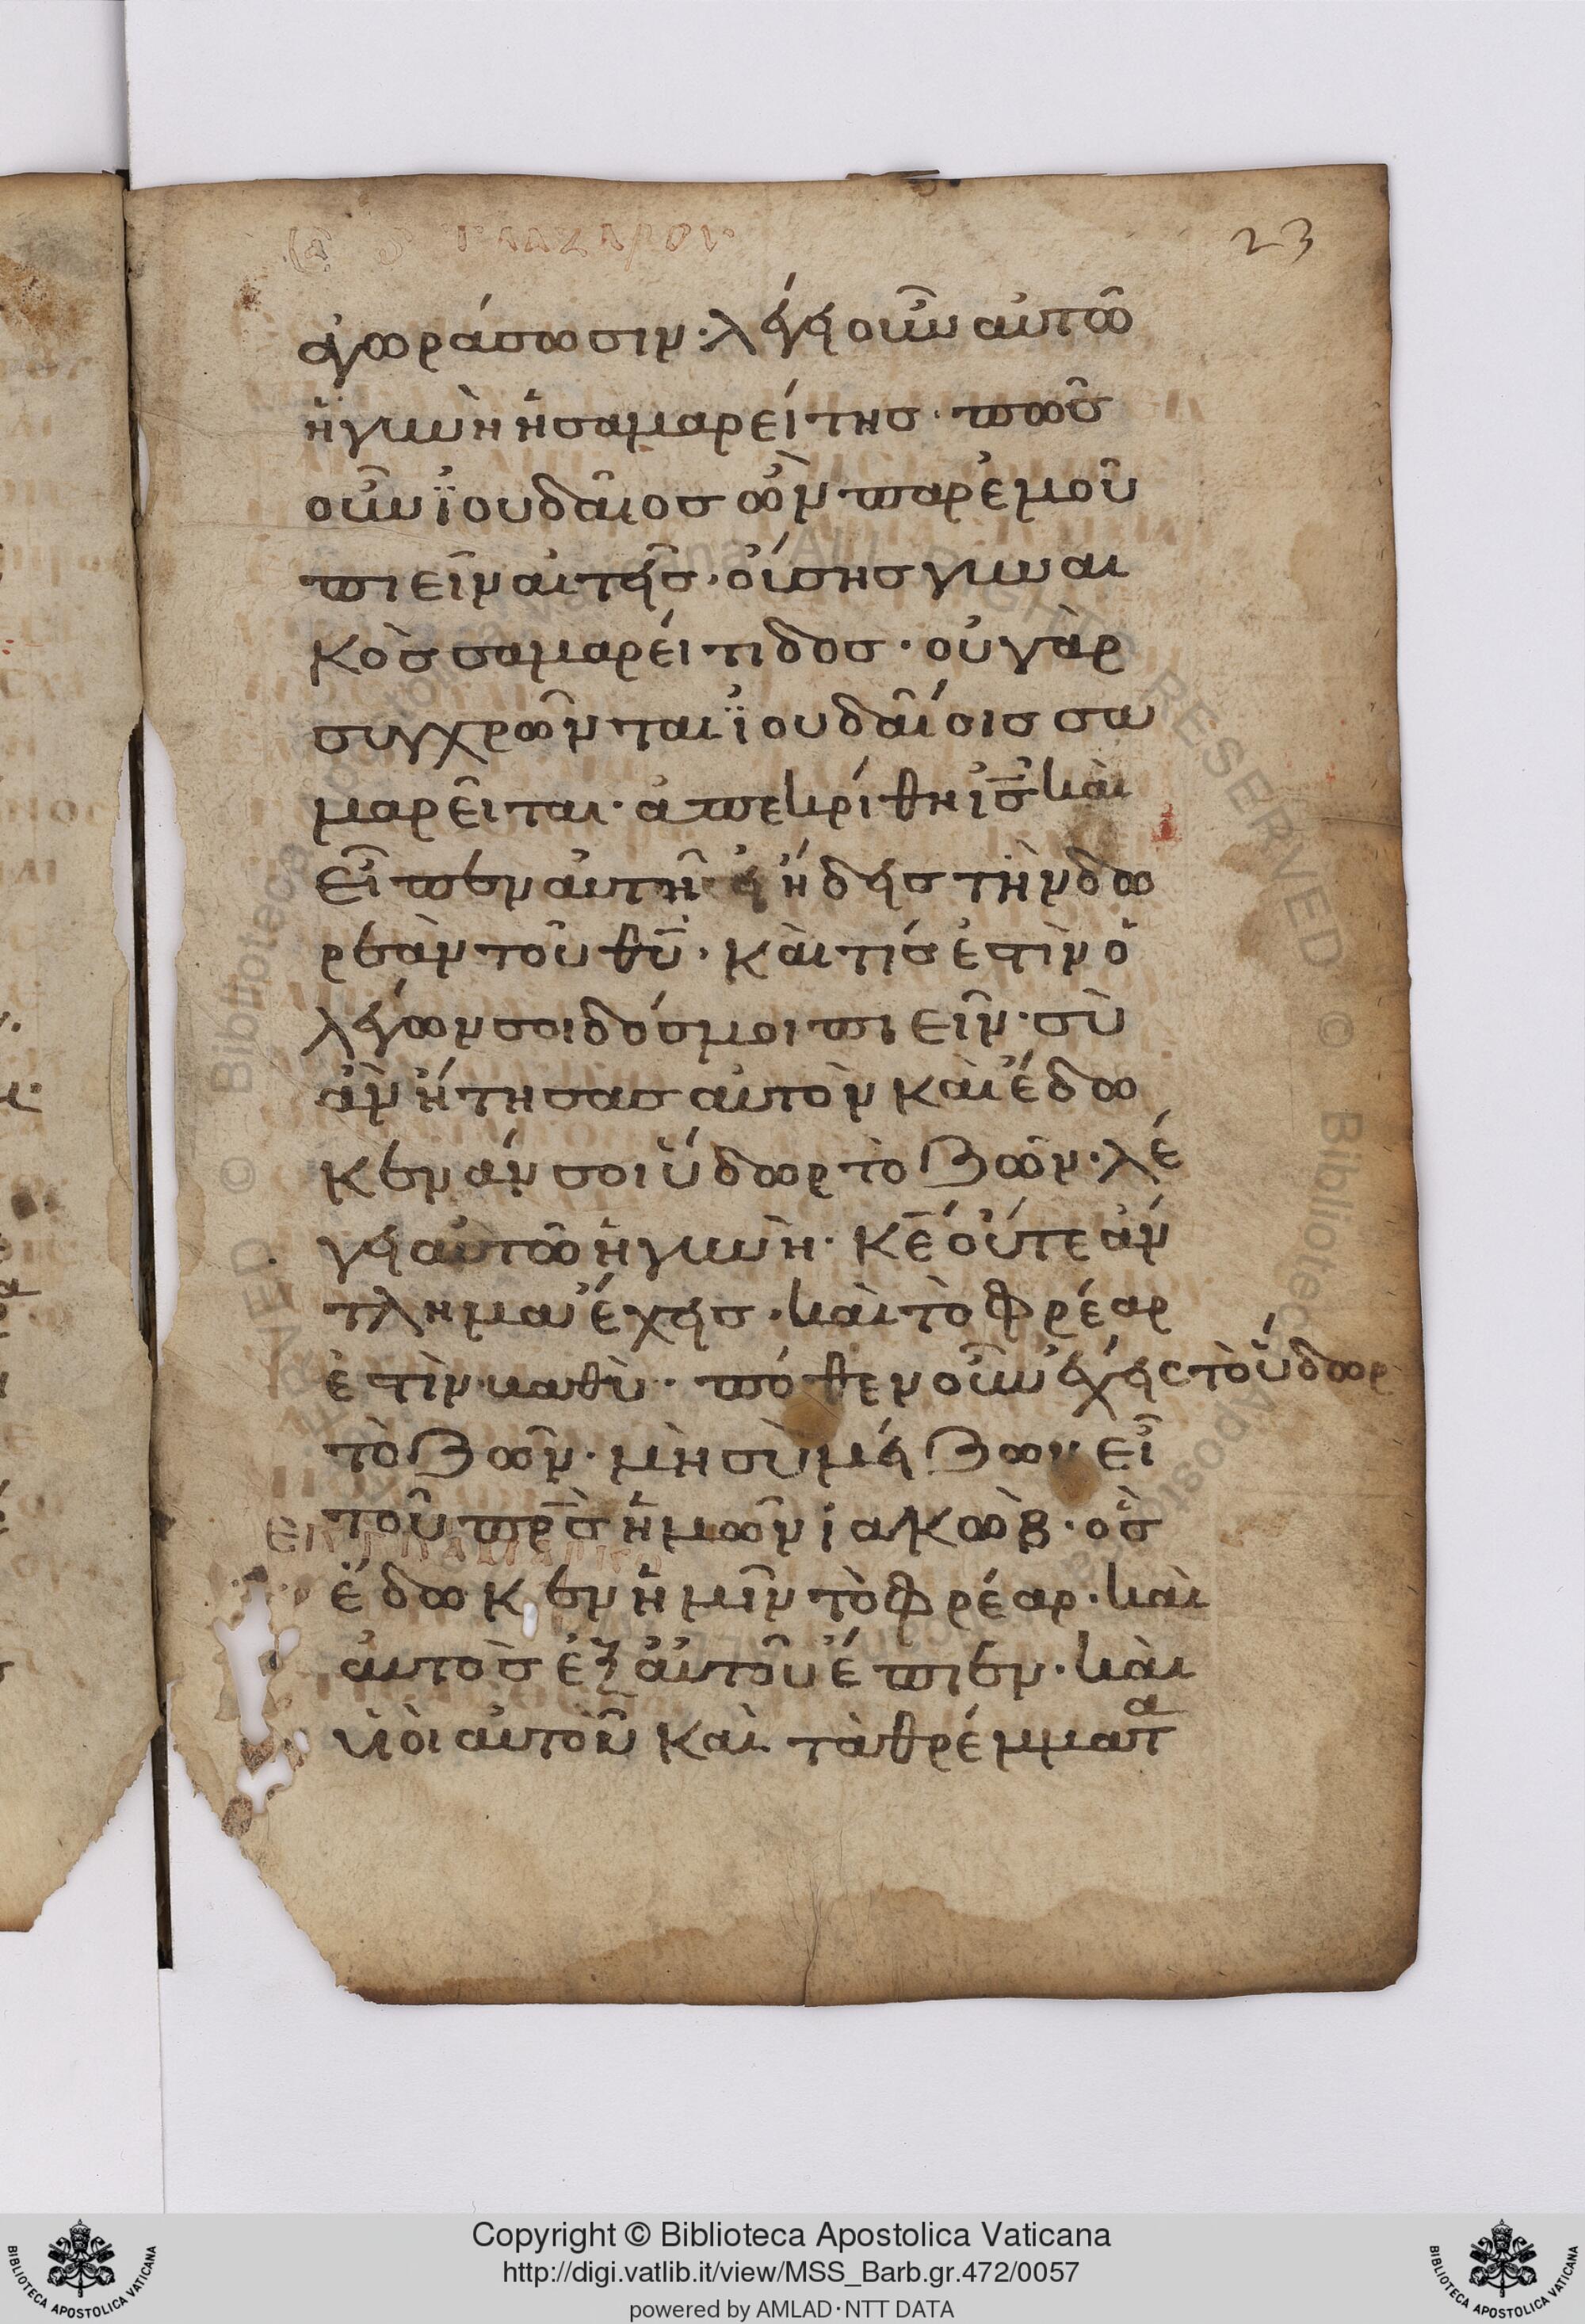 23
ἀγωράσωσιν· λέγει οὖν αὐτῶ
ἡ γυνὴ ἡ σαμαρεί της· πῶσ
οὖν ϊουδαῖοσ ὢν παρ ἐμοῦ
πιεῖν αἰτεῖς· οὔσησ γυναι
κὸσ σαμαρείτιδοσ· οὐ γὰρ
συγχρῶνται ϊουδαῖοισ σα
μαρεῖται· ἀπεκρίθη ἰ̅σ̅ καὶ
εἶπεν αὐτῆ εἰ ἤδεισ τὴν δω
ρεὰν τοῦ θ̅υ̅· καὶ τίσ ἐστὶν ὁ
λέγων σοι δόσ μοι πιεῖν· σὺ
ἂν ἤτησασ αὐτὸν καὶ ἔδω
κεν ἄν σοι ὕδωρ τὸ ζῶν· λέ
γει αὐτῶ ἡ γυνὴ· κ̅ε̅ οὔτε ἄν
τλημα ἔχεισ· καὶ τὸ φρέαρ
ἐστὶν βαθὺ· πόθεν οὖν ἔχεισ τὸ ὕδωρ
τὸ ζῶν· μὴ σὺ μείζων εἶ
τοῦ π̅ρ̅σ̅ ἡμῶν ἰακὼβ· ὃσ
ἔδωκεν ἡμῖν τὸ φρέαρ· καὶ
αὐτὸσ ἐξ αὐτοῦ ἔπιεν· καὶ
υἱοι αὐτοῦ καὶ τὰ θρέμματα
Copyright © Biblioteca Apostolica Vaticana
http://digi.vatlib.it/view/MSS_Barb.gr.472/0057
powered by AMLAD·NTT DATA
BIBLIOTECA APOSTOLICA VATICANA
BIBLIOTECA APOSTOLICA VATICANA